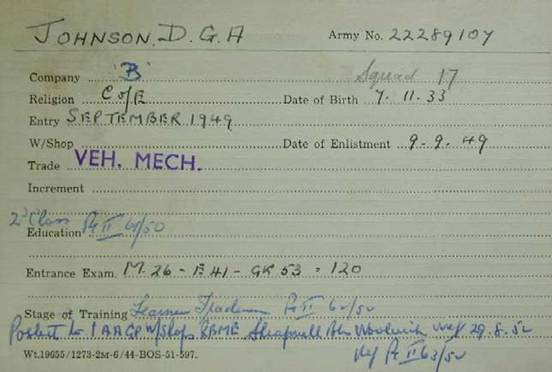 JOHNSON. D. G. A Army No. 22289107
Company 'B' Squad 17
Religion C of E Date of Birth 7. 11. 33
Entry SEPTEMBER 1949
W/Shop Date of Enlistment 9-9-49
Trade VEH. MECH.
Increment
2nd Class
Education Pt II 61/50
Entrance Exam. M. 26 - E 41 - GK 53 = 120
Stage of Training Learner Tradesman Pt II 62/52
Posted to 1 AAGP W/Shops REME Woolwich wef 29.8.52
Wt.19655/1273-2M-6/44-BOS-51-597. Pt II 63/52